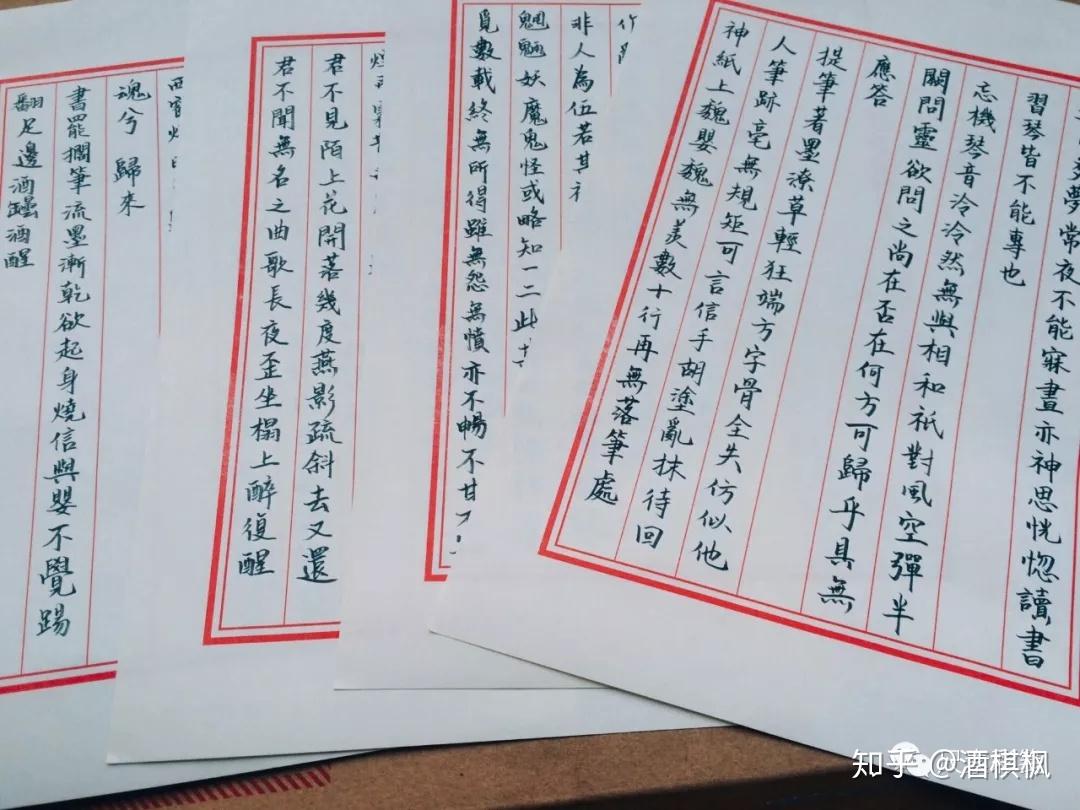 夢常夜不能寐晝亦神思恍惚讀書
習琴皆不能專也
忘機琴音泠泠然無與相和祇對風空彈半
闕問靈欲問之尚在否在何方可歸乎具無
應答
提筆著墨潦草輕狂端方字骨全失仿似他
人筆跡毫無規矩可言信手胡塗亂抹待回
神紙上魏嬰魏無羨數十行再無落筆處
非人為伍若其
魍魎妖魔鬼怪或略知一二此
覓數載終無所得雖無怨無憤亦不暢不甘
君不見陌上花開落幾度燕影疏斜去又還
君不聞無名之曲歌長夜歪坐榻上醉復醒
魂兮歸來
書罷擱筆流墨漸乾欲起身燒信與嬰不覺踢
翻足邊酒罈酒醒
知乎 @酒棋枫